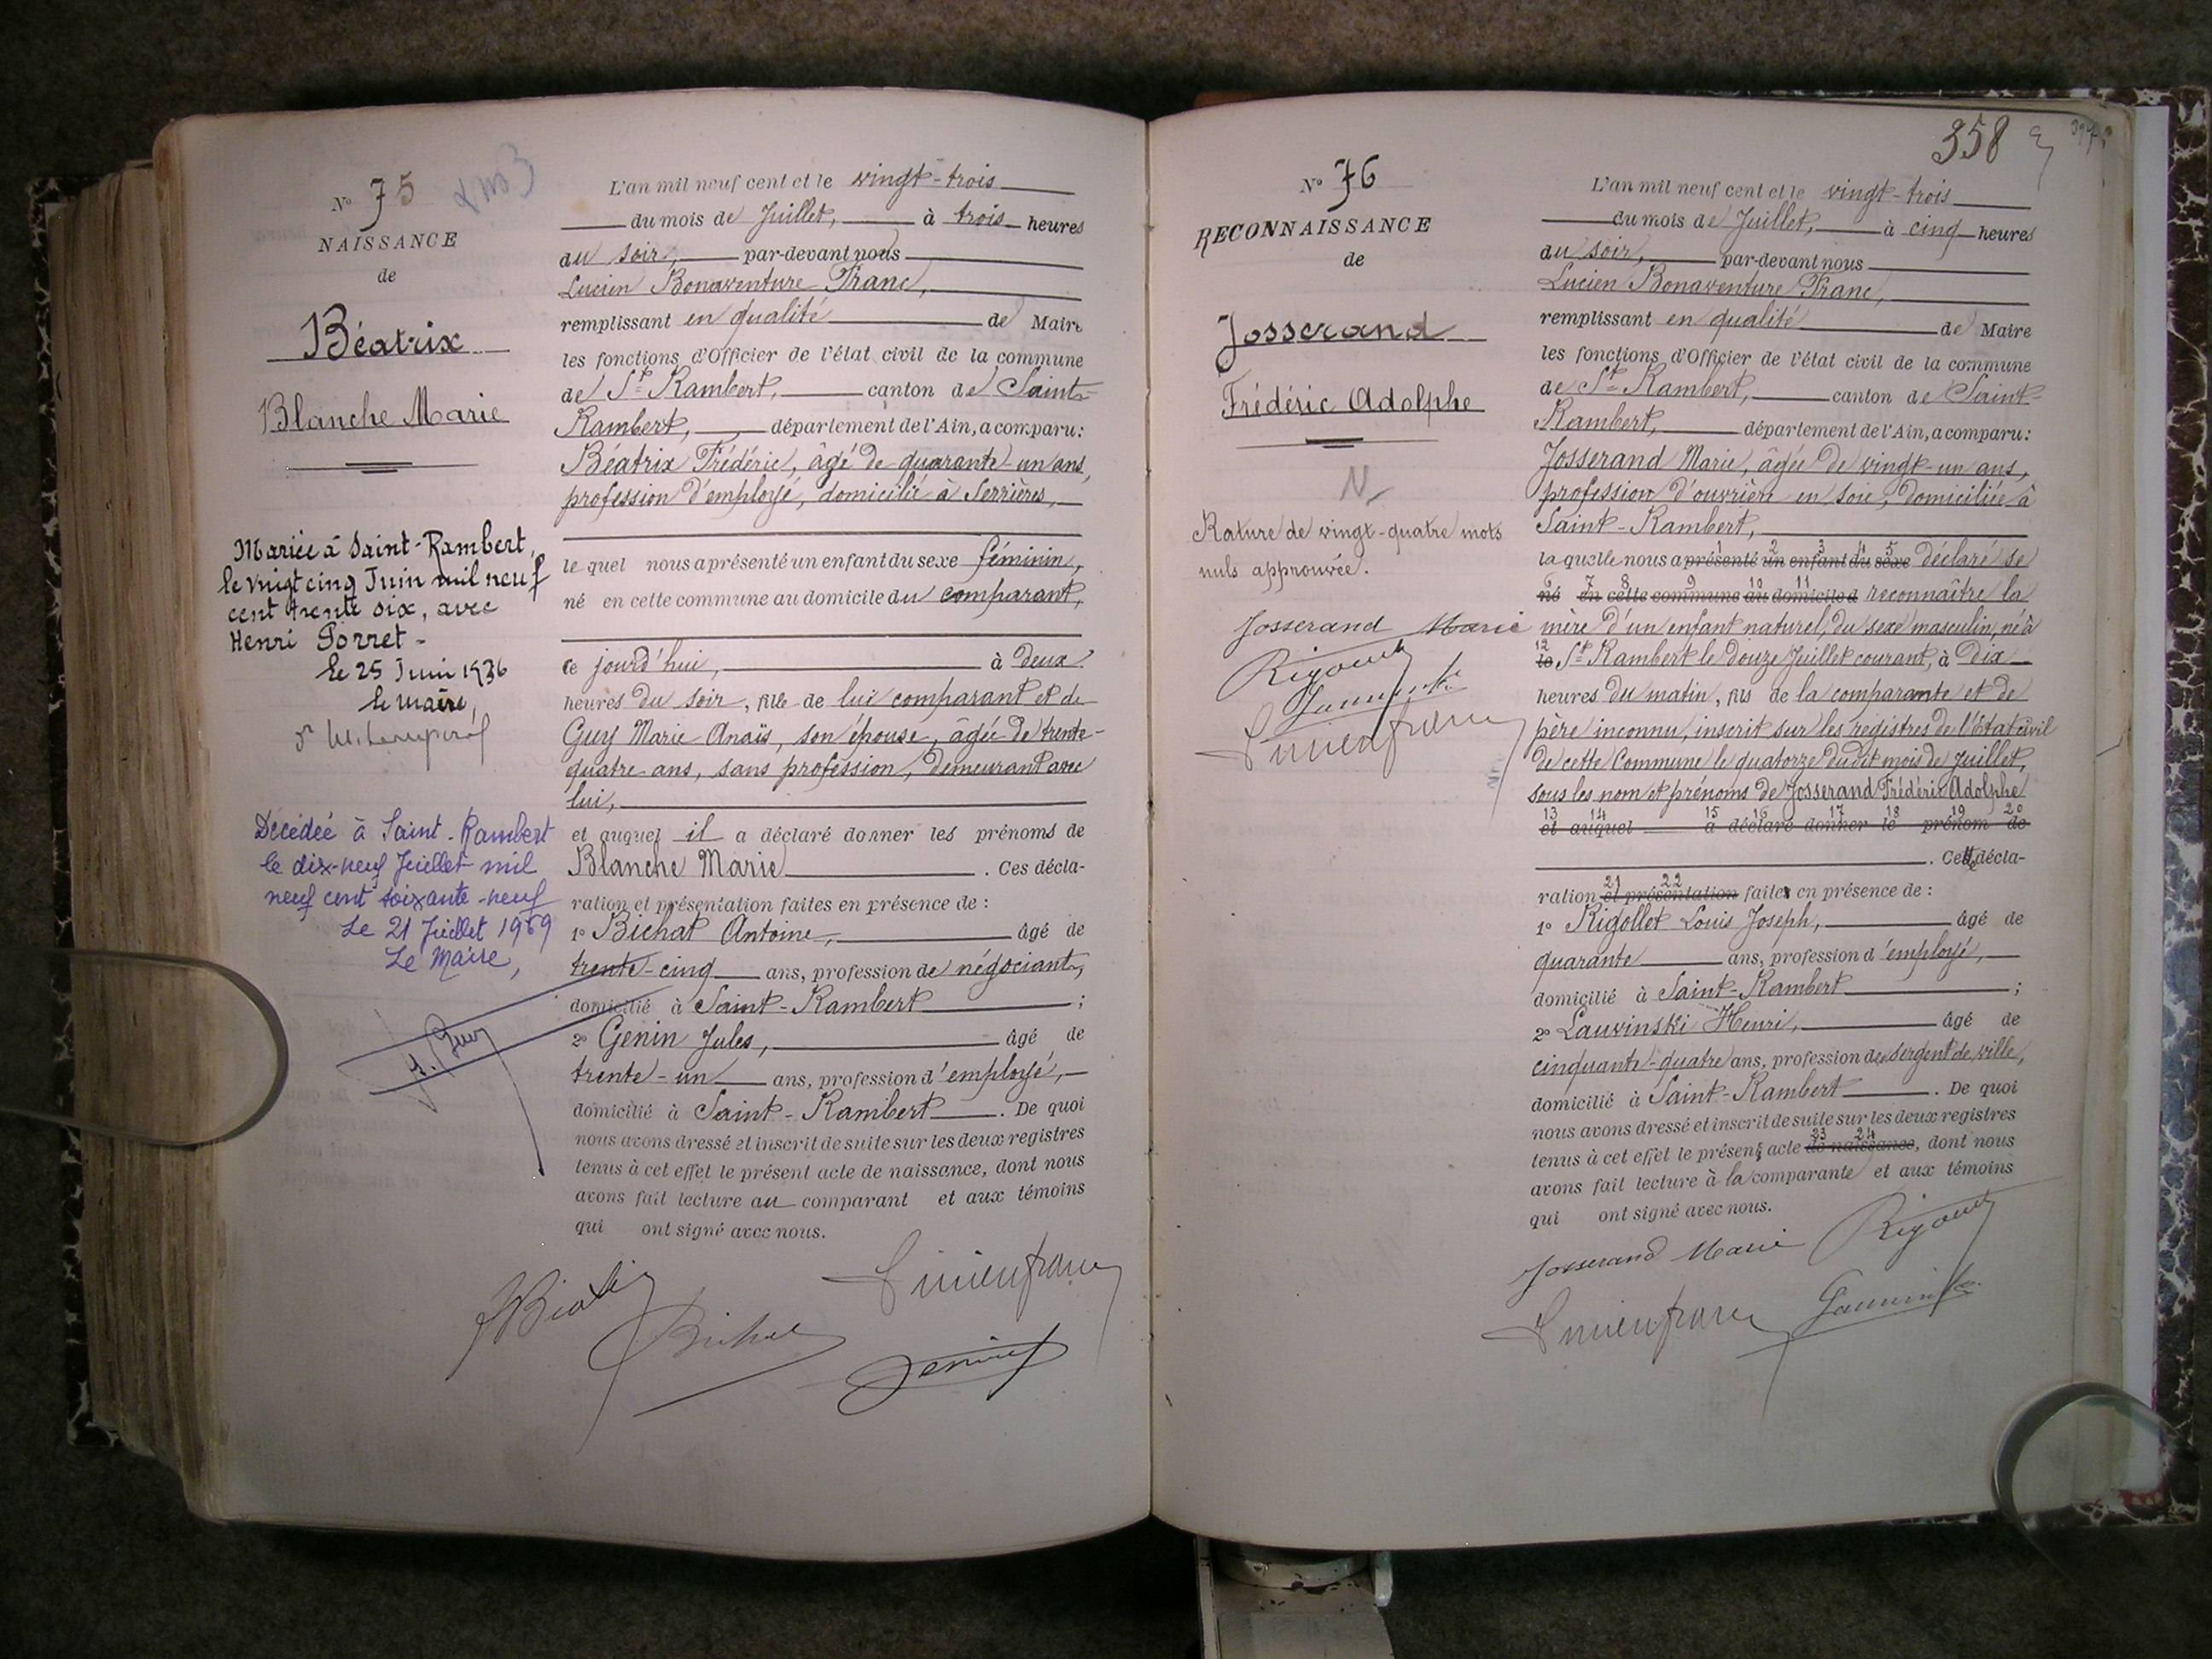 N° 75
NAISSANCE
de
Béatrix
Blanche Marie
Mariée à Saint-Rambert,
le vingt cinq Juin mil neuf
cent trente six, avec
Henri Porret -
le 25 Juin 1936
le maire,
Décédée à Saint-Rambert
le dix-neuf Juillet mil
neuf cent soixante-neuf
Le 21 Juillet 1969
Le Maire,
L'an mil neuf cent et le vingt-trois
du mois de Juillet, à trois heures
du soir, par-devant nous
Lucien Bonaventure Franc,
remplissant en qualité de Maire
les fonctions d'Officier de l'état civil de la commune
de St Rambert, canton de Saint-
Rambert, département de l'Ain, a comparu:
Béatrix Frédéric, âgé de quarante-un ans,
profession d'employé, domicilié à Serrières,
le quel nous a présenté un enfant du sexe féminin,
né en cette commune au domicile du comparant,
ce jourd'hui, à deux
heures du soir, fille de lui comparant et de
Guy Marie Anaïs, son épouse, âgée de trente-
quatre ans, sans profession, demeurant avec
lui,
et auquel il a déclaré donner les prénoms de
Blanche Marie. Ces décla-
ration et présentation faites en présence de :
1° Bichat Antoine, âgé de
trente-cinq ans, profession de négociant,
domicilié à Saint-Rambert ;
2° Genin Jules, âgé de
trente-un ans, profession d'employé,
domicilié à Saint-Rambert. De quoi
nous avons dressé et inscrit de suite sur les deux registres
tenus à cet effet le présent acte de naissance, dont nous
avons fait lecture au comparant et aux témoins
qui ont signé avec nous.
Lucien franc
Bichat
Genin
358
N° 76
RECONNAISSANCE
de
Josserand
Frédéric Adolphe
N
Rature de vingt-quatre mots
nuls approuvée.
Josserand Marie
Lucien franc
L'an mil neuf cent et le vingt-trois
du mois de Juillet, à cinq heures
du soir, par-devant nous
Lucien Bonaventure Franc,
remplissant en qualité de Maire
les fonctions d'Officier de l'état civil de la commune
de St Rambert, canton de Saint-
Rambert, département de l'Ain, a comparu:
Josserand Marie, âgée de vingt-un ans,
profession d'ouvrière en soie, domiciliée à
Saint-Rambert,
1 2 3 4 5
laquelle nous a présenté un enfant du sexe déclaré se
6 7 8 9 10 11
né en cette commune au domicile d reconnaître la
mère d'un enfant naturel, du sexe masculin, né à
12
le St Rambert le douze Juillet courant, à dix
heures du matin, fils de la comparante et de
père inconnu, inscrit sur les registres de l'état civil
de cette Commune le quatorze dudit mois de Juillet,
sous les nom et prénoms de Josserand Frédéric Adolphe
13 14 15 16 17 18 19 20
et auquel a déclaré donner le prénom de
. Cette décla-
21 22
ration et présentation faite en présence de :
1° Rigollet Louis Joseph, âgé de
quarante ans, profession d'employé,
domicilié à Saint-Rambert ;
2° Lauvinski Henri, âgé de
cinquante-quatre ans, profession de sergent de ville,
domicilié à Saint-Rambert. De quoi
nous avons dressé et inscrit de suite sur les deux registres
23 24
tenus à cet effet le présent acte de naissance, dont nous
avons fait lecture à la comparante et aux témoins
qui ont signé avec nous.
Josserand Marie
Lucien franc